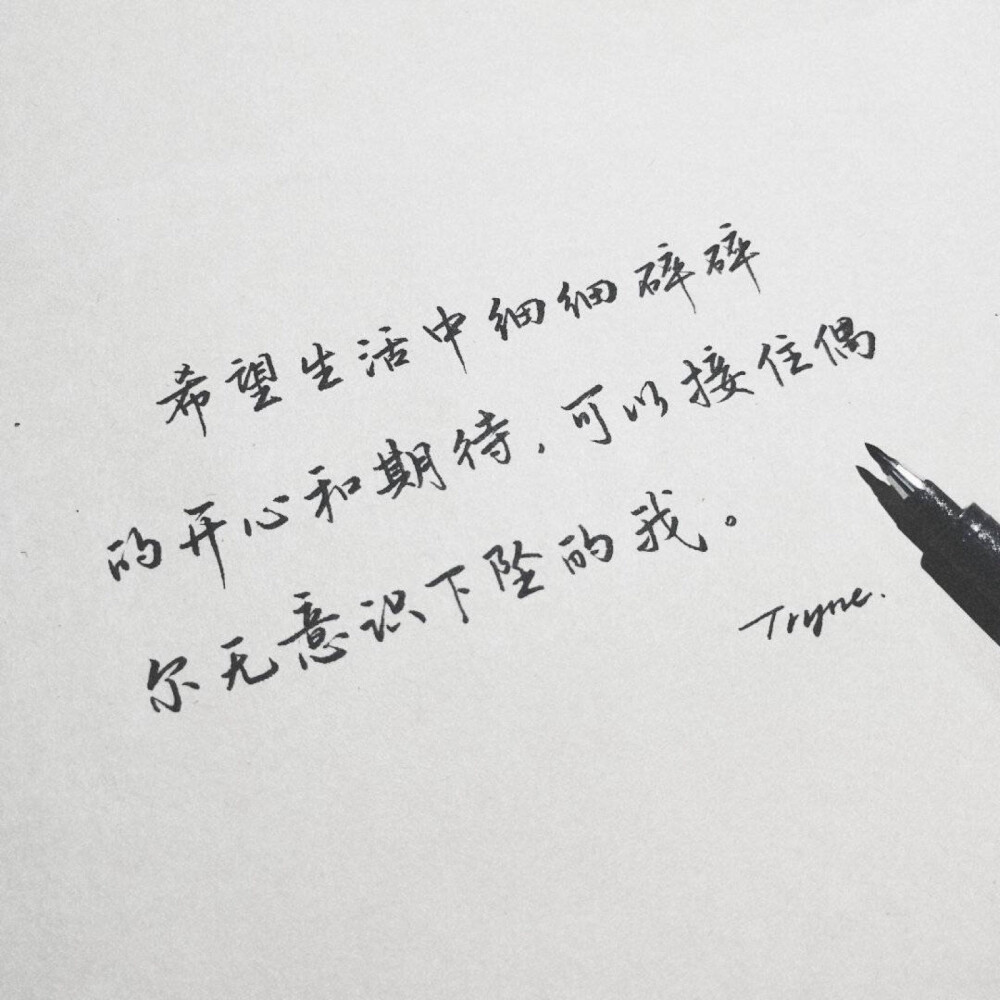 希望生活中细细碎碎
的开心和期待，可以接住偶
尔无意识下坠的我。
Tryne.